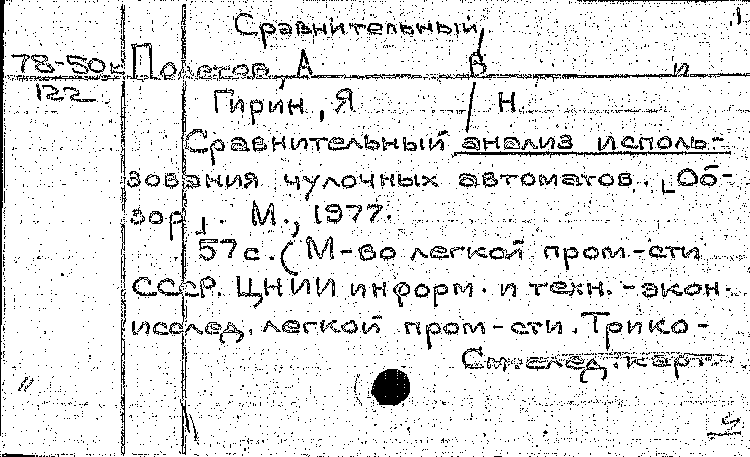 Сравнительный
78-50к Полетов, А В и
122 Гирин, Я Н
Сравнительный анализ исполь-
зования чулочных автоматов. [Об-
зор]. М., 1977.
57с. (М-во легкой пром-сти
СССР. ЦНИИ информ. и техн.-экон.
исслед. легкой пром-сти. Трико-
См. след. карт.